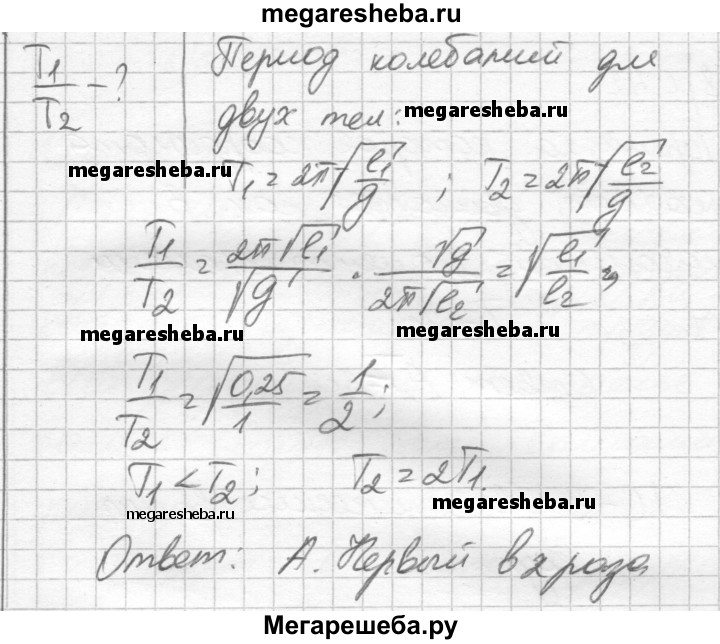 megaresheba.ru
T₁/T₂ - ? Период колебаний для
двух тел: megaresheba.ru
megaresheba.ru
T₁ = 2π√(l₁/g) ; T₂ = 2π√(l₂/g)
T₁/T₂ = 2π√l₁/√g · √g/2π√l₂ = √(l₁/l₂) ;
megaresheba.ru megaresheba.ru
T₁/T₂ = √(0,25/1) = 1/2 ;
megaresheba.ru
T₁ < T₂ ; T₂ = 2T₁.
megaresheba.ru megaresheba.ru
Ответ: А. Первый в 2 раза
Мегарешеба.ру